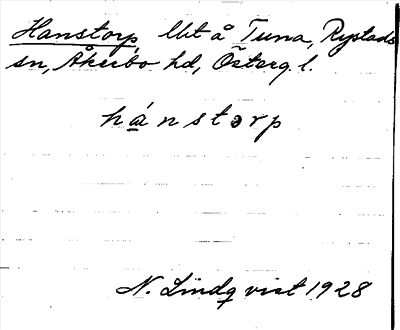 Hanstorp, lbt å Tuna, Rystads
sn, Åkerbo hd, Österg. l.
hánstərp
N. Lindqvist 1928